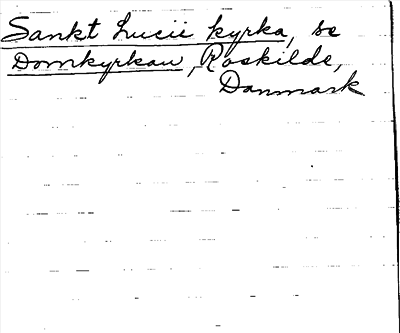 Sankt Lucii kyrka, se
Domkyrkan, Roskilde,
Danmark